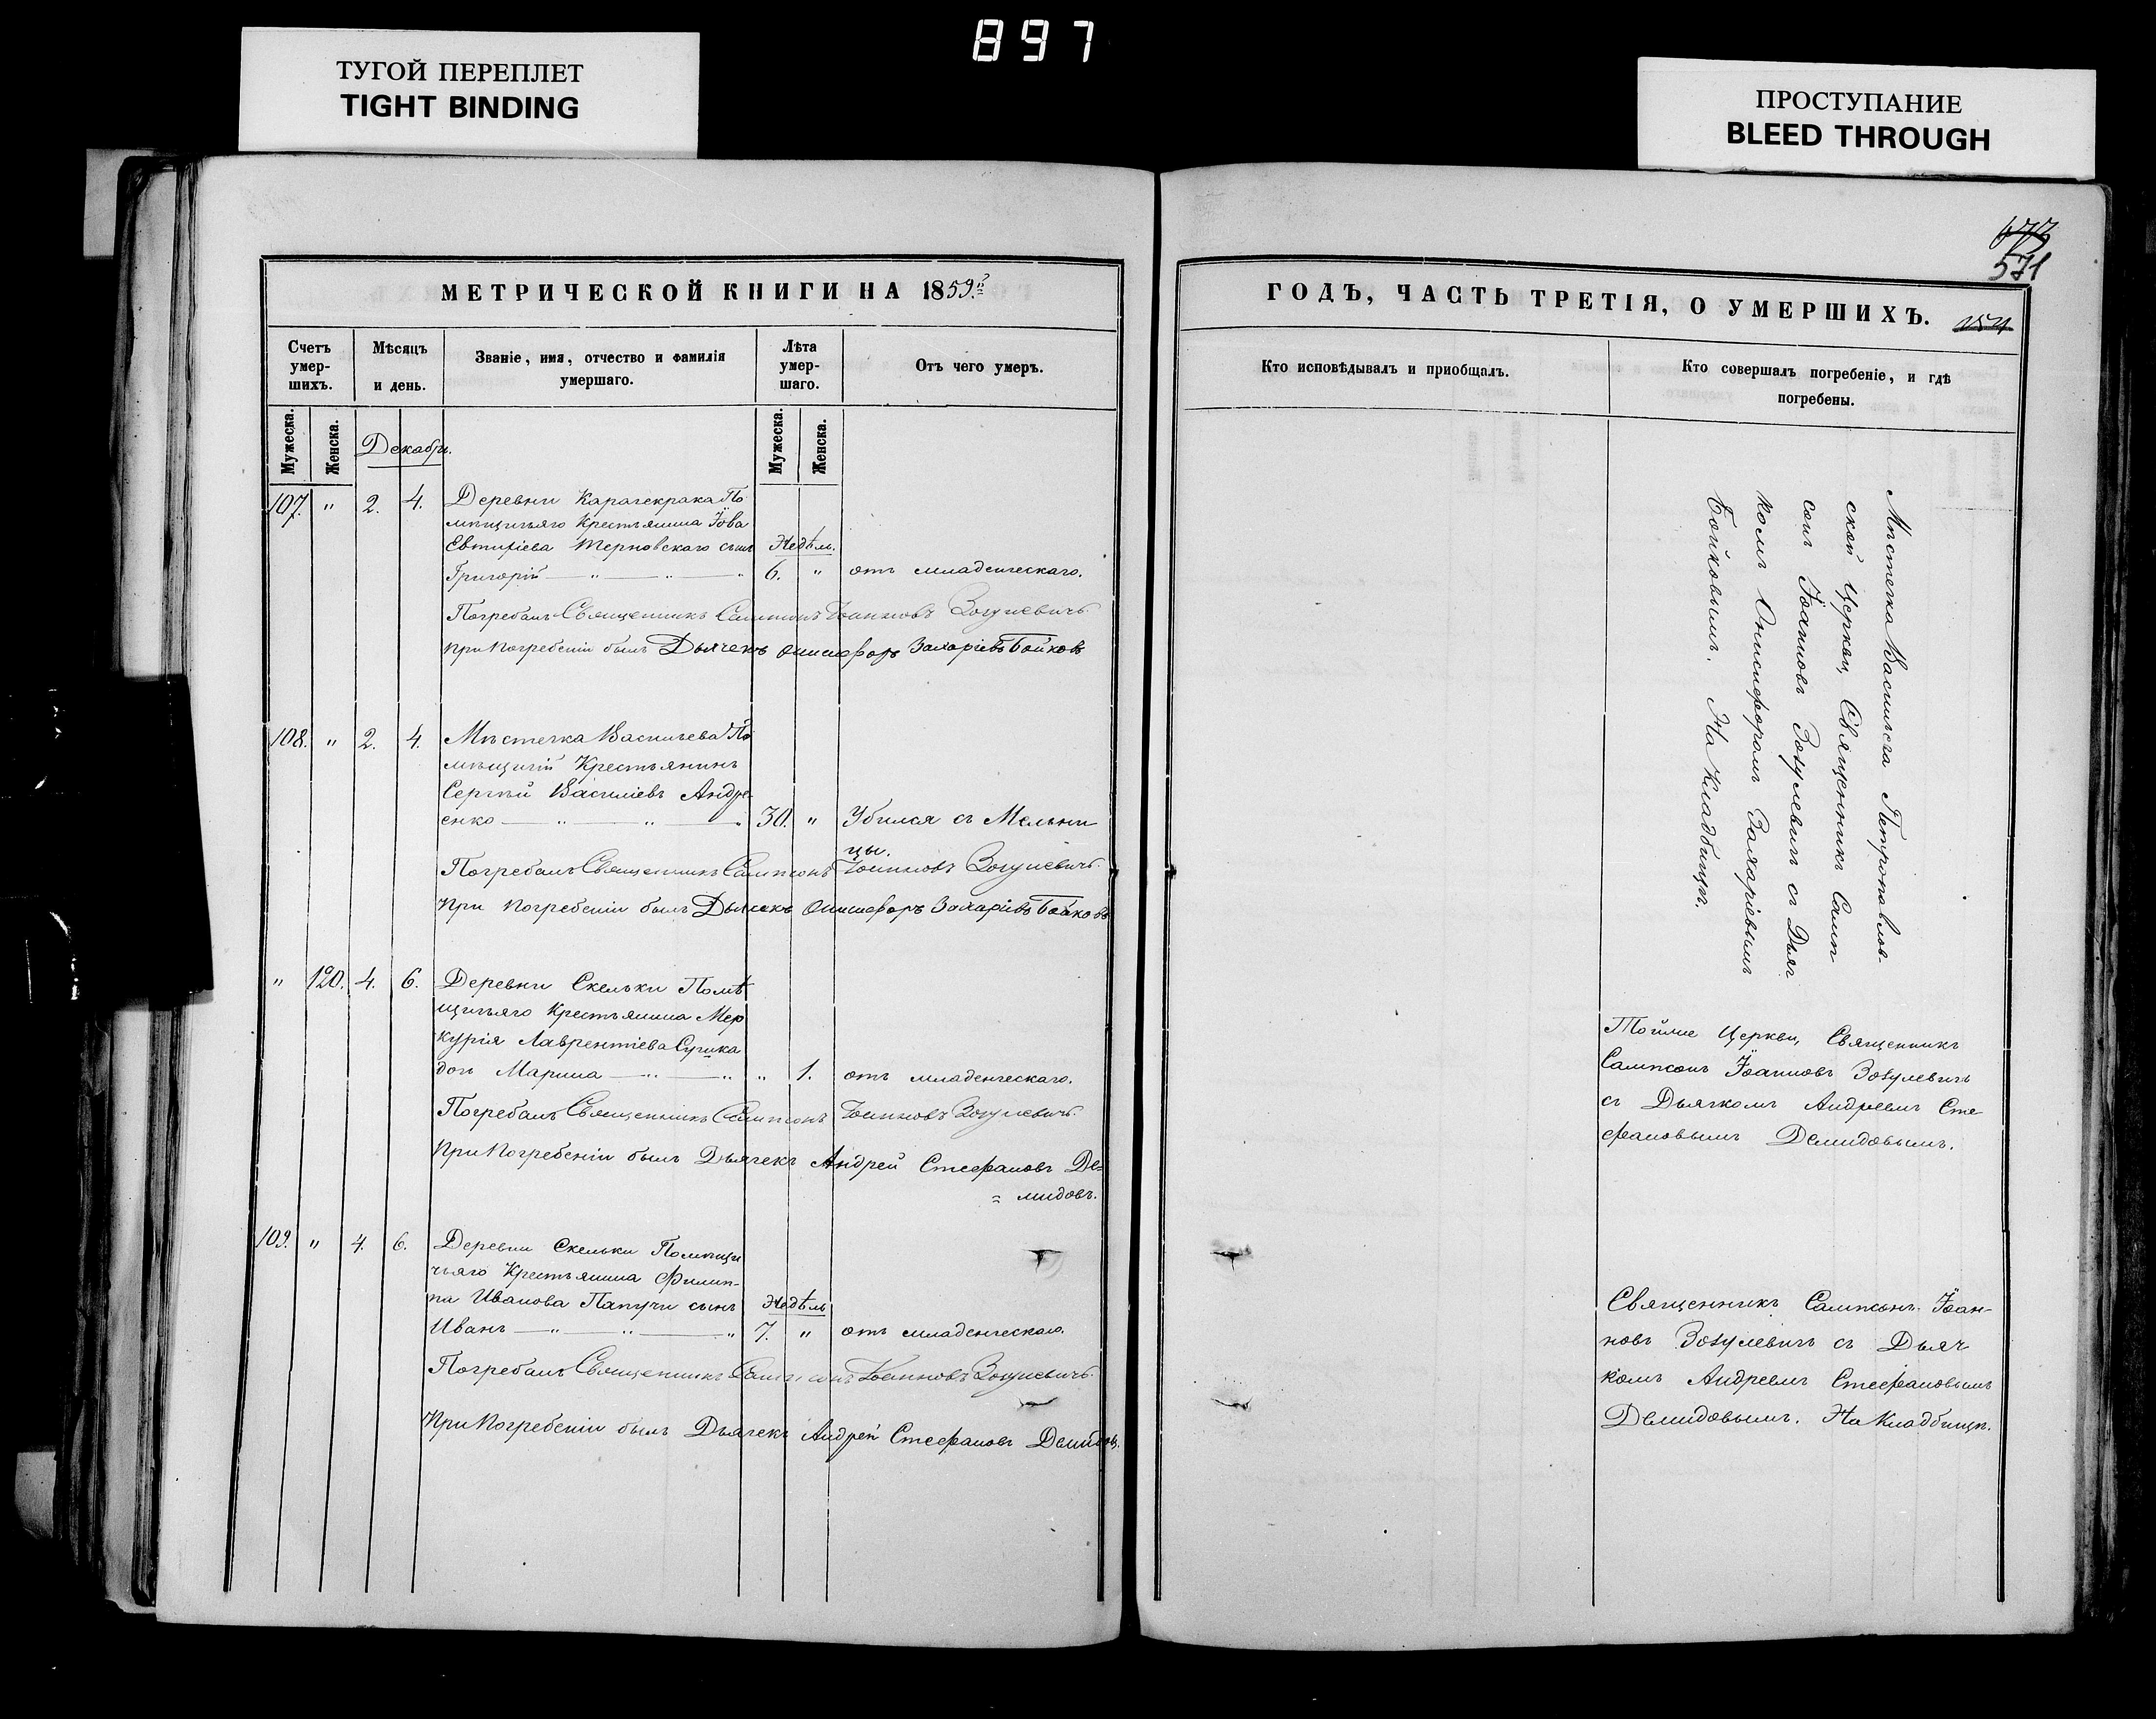 897
ТУГОЙ ПЕРЕПЛЕТ
TIGHT BINDING
ПРОСТУПАНИЕ
BLEED THROUGH
МЕТРИЧЕСКОЙ КНИГИ НА 1859.й
Счетъ умер-шихъ.
Мѣсяцъ и день.
Званіе, имя, отчество и фамилія умершаго.
Лѣта умер-шаго.
Отъ чего умеръ.
Мужеска.
Женска.
Декабрь.
Мужеска.
Женска.
107. " 2. 4. Деревни Карачекрака По
мѣщичьяго Крестьянина Іова
Евтихіева Терновскаго сынъ Недѣль.
Григорій — " — " — " 6. " отъ младенческаго.
Погребалъ Священникъ Сампсонъ Іоанновъ Зосулевичъ.
При Погребеніи былъ Дьячекъ Онисифоръ Захаріевъ Бойковъ
108. " 2. 4. Мѣстечка Васильева По
мѣщичій Крестьянинъ
Сергѣй Василіевъ Андре-
енко — " — " — " 30. " Убился съ Мельни
цы.
Погребалъ Священникъ Сампсонъ Іоанновъ Зосулевичъ.
При Погребеніи былъ Дьячекъ Онисифоръ Захаріевъ Бойковъ
" 120. 4. 6. Деревни Скельки Помѣ
щичьяго Крестьянина Мер
курія Лаврентіева
дочь Марина — " — " " 1. отъ младенческаго.
Погребалъ Священникъ Сампсонъ Іоанновъ Зосулевичъ.
При Погребеніи былъ Дьячекъ Андрей Стефановъ Де=
= мидовъ.
109. " 4. 6. Деревни Скельки Помѣщи
чьяго Крестьянина Филип-
па Иванова Папучи сынъ Недѣль
Иванъ — " — " — " 7. " отъ младенческаго.
Погребалъ Священникъ Сампсонъ Іоанновъ Зосулевичъ.
При Погребеніи былъ Дьячекъ Андрей Стефановъ Демидовъ.
571
ГОДЪ, ЧАСТЬ ТРЕТІЯ, О УМЕРШИХЪ.
Кто исповѣдывалъ и пріобщалъ.
Кто совершалъ погребеніе, и гдѣ погребены.
Мѣстечка Васильева Петропавлов-
ской Церкви, Священникъ Самп-
сонъ Іоанновъ Зосулевичъ съ Дьяч
комъ Онисифоромъ Захаріевымъ
Бойковымъ. На Кладбищѣ.
Тойже Церкви, Священникъ
Сампсонъ Іоанновъ Зосулевичъ
съ Дьячкомъ Андреемъ Сте
фановымъ Демидовымъ.
Священникъ Сампсонъ Іоан-
новъ Зосулевичъ съ Дьяч
комъ Андреемъ Стефановымъ
Демидовымъ. На Кладбищѣ.